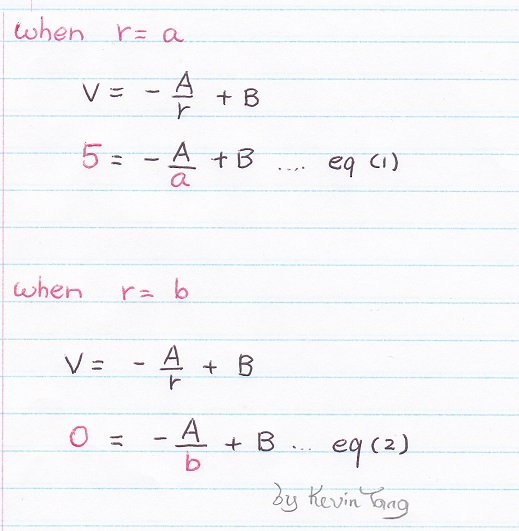 when r = a
V = - A/r + B
5 = - A/a + B .... eq (1)
when r = b
V = - A/r + B
0 = - A/b + B ... eq (2)
by Kevin Tang